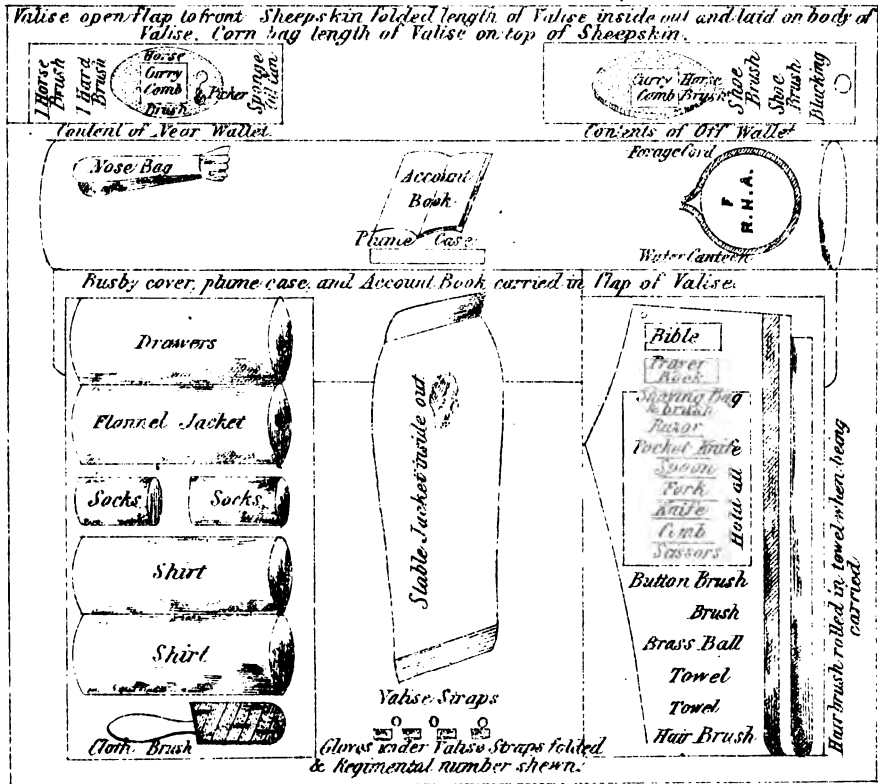 Valise open flap to front Sheepskin folded length of Valise inside out and laid on body of
Valise. Corn bag length of Valise on top of Sheepskin.
1 Horse
Brush
1 Hard
Brush
Horse
Curry
Comb
Brush
Picker
Sponge
Oil Can
Curry Horse
Comb Brush
Shoe
Brush
Shoe
Brush
Blacking
Content of Near Wallet.
Contents of Off Wallet
Nose Bag
Account
Book
Plume Case
Forage Cord
F
R.H.A.
Water Canteen
Busby cover, plume case, and Account Book carried in flap of Valise.
Drawers
Flannel Jacket
Socks
Socks
Shirt
Shirt
Cloth Brush
Stable Jacket inside out
Valise Straps
Gloves under Valise Straps folded
& Regimental number shewn.
Bible
Prayer
Book
Shaving Bag
& brush
Razor
Pocket Knife
Spoon
Fork
Knife
Comb
Scissors
Hold all
Button Brush
Brush
Brass Ball
Towel
Towel
Hair Brush
Hair brush rolled in towel when being
carried